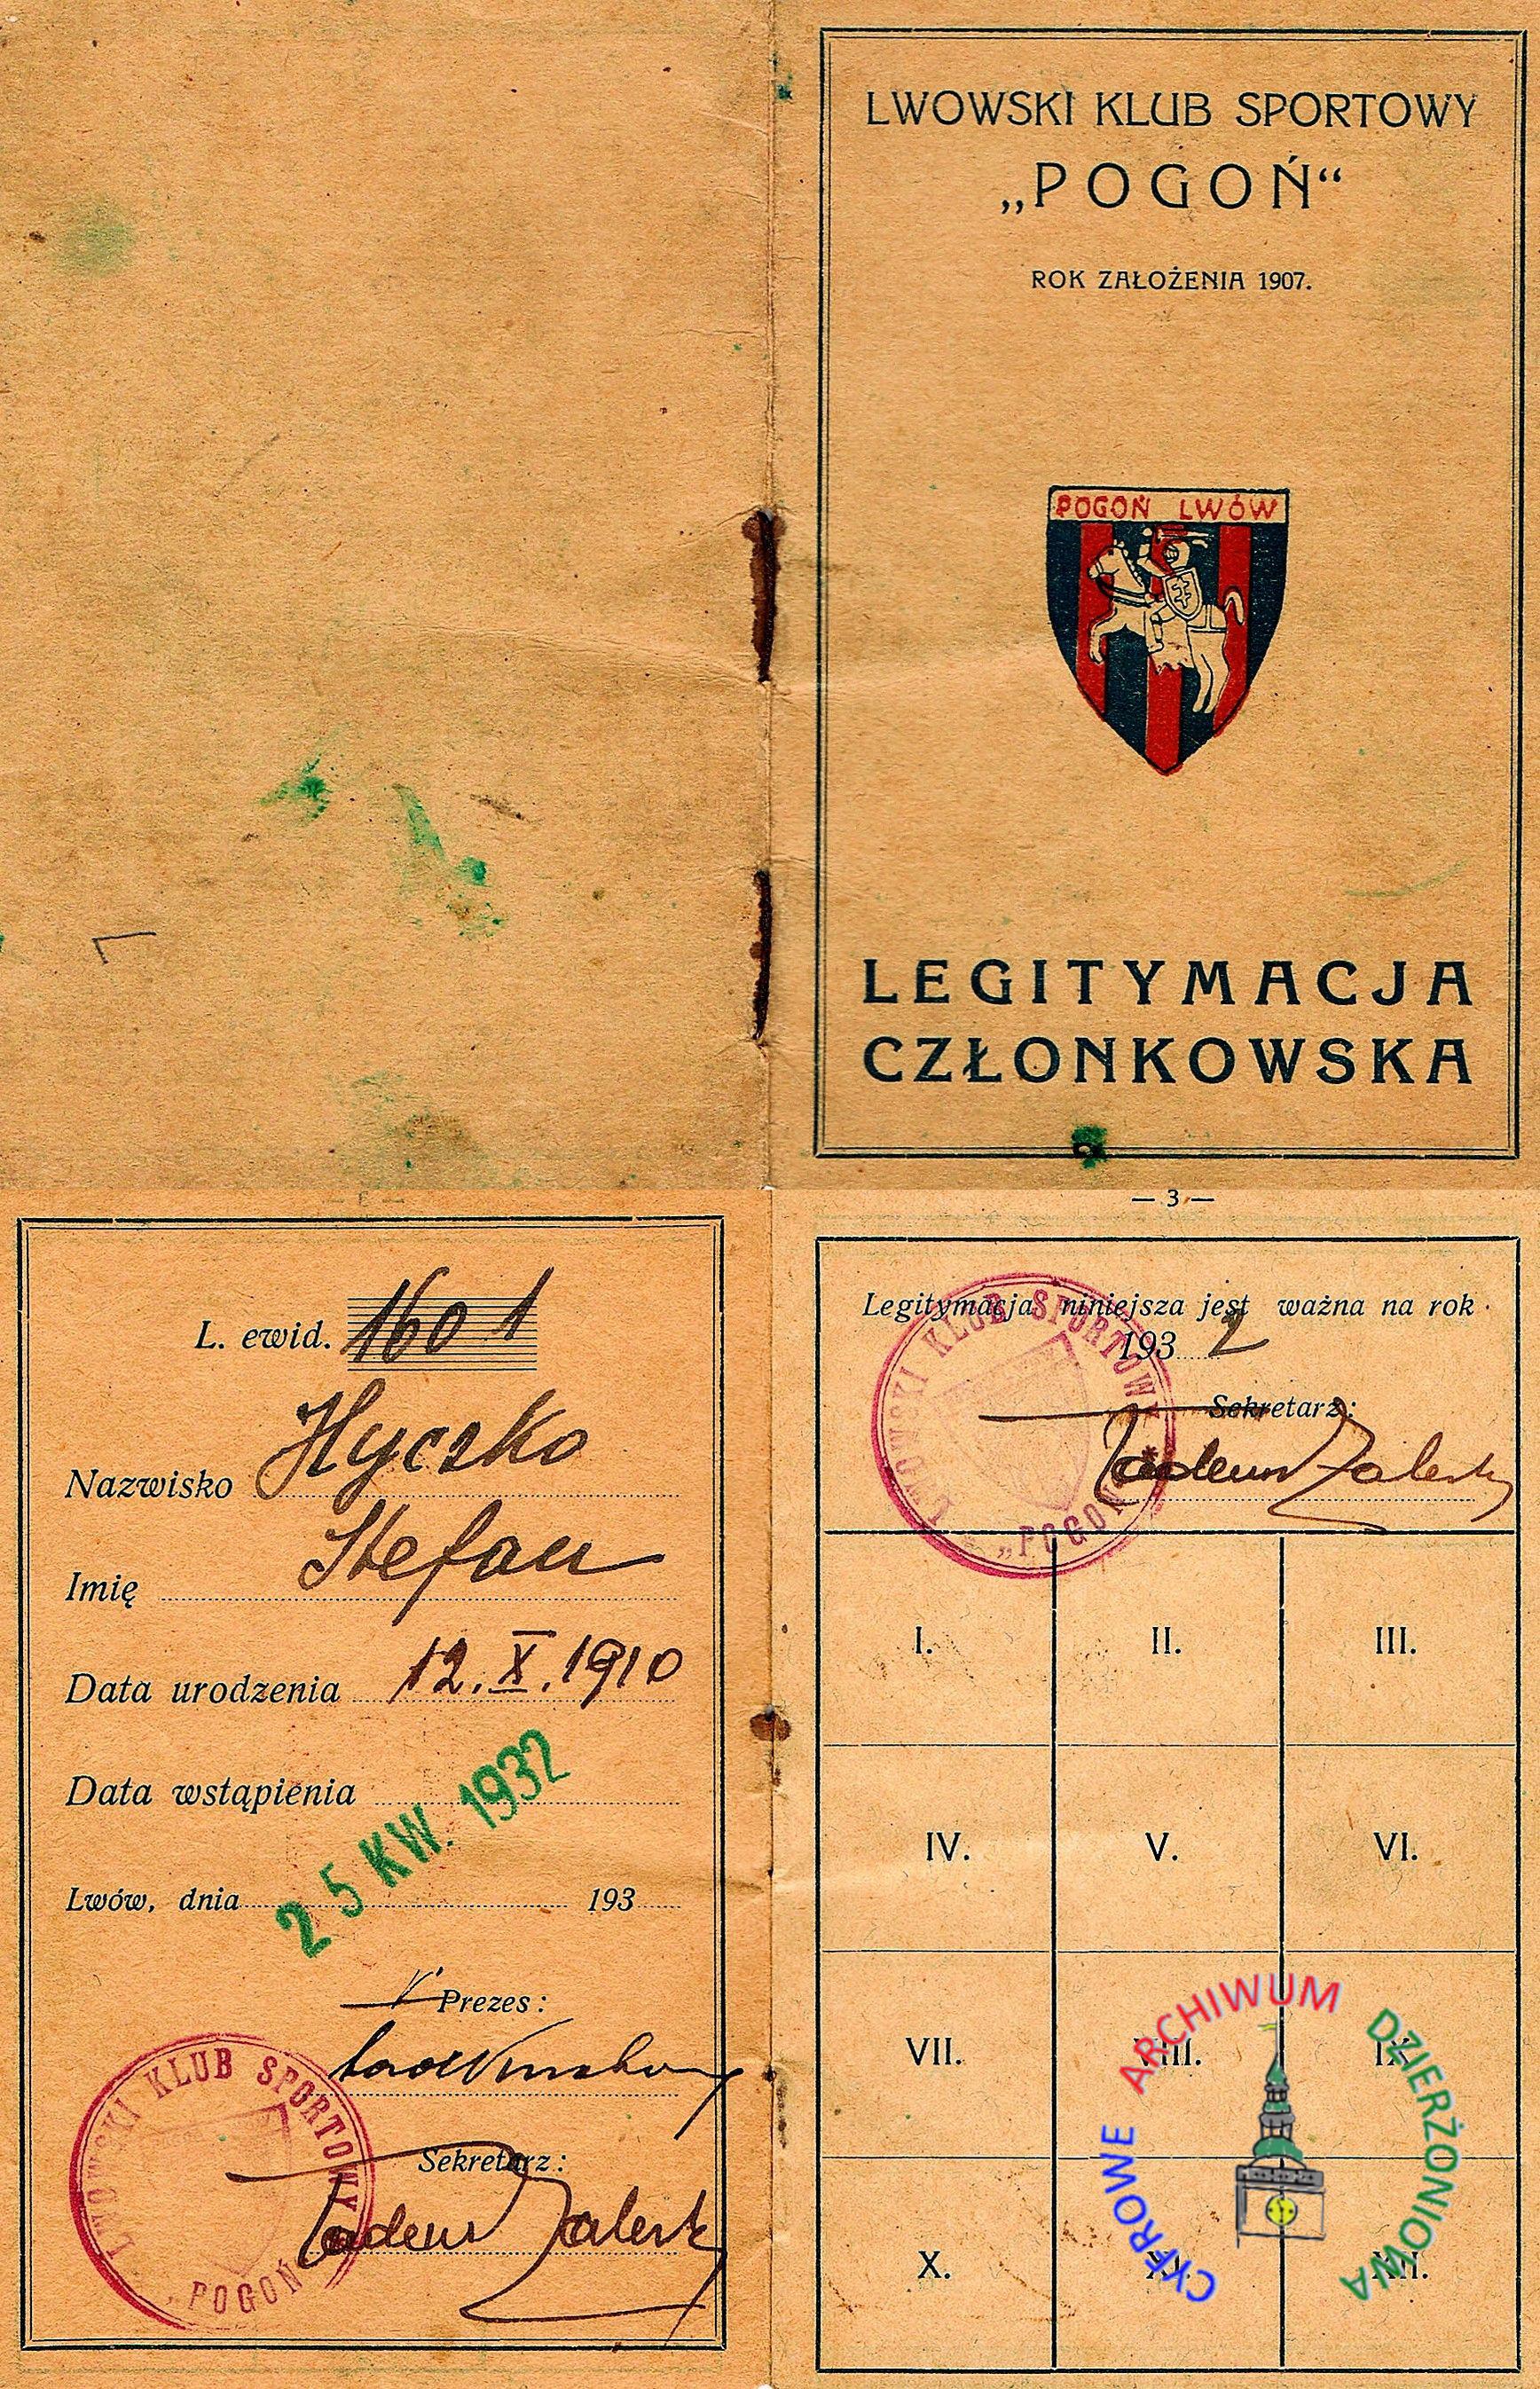 LWOWSKI KLUB SPORTOWY
„POGOŃ“
ROK ZAŁOŻENIA 1907.
POGOŃ LWÓW
LEGITYMACJA
CZŁONKOWSKA
L. ewid. 1601
Nazwisko Hyczko
Imię Stefan
Data urodzenia 12. X. 1910
Data wstąpienia
25 KW. 1932
Lwów, dnia 193
Prezes:
Sekretarz:
Tadeusz Zaleski
LWOWSKI KLUB SPORTOWY
POGOŃ
— 3 —
Legitymacja niniejsza jest ważna na rok
193 2
Sekretarz:
Tadeusz Zaleski
LWOWSKI KLUB SPORTOWY
„POGOŃ“
I. II. III.
IV. V. VI.
VII. VIII. IX.
X. XI. XII.
CYFROWE ARCHIWUM DZIERŻONIOWA